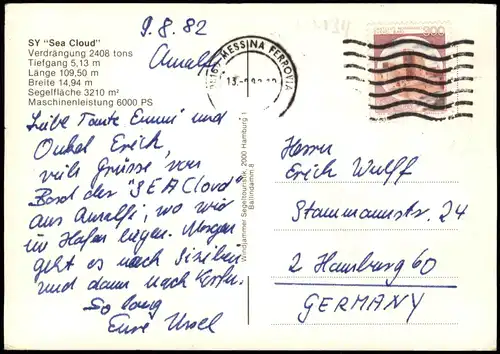 9.8.82
Amalfi
SY "Sea Cloud"
Verdrängung 2408 tons
Tiefgang 5,13 m
Länge 109,50 m
Breite 14,94 m
Segelfläche 3210 m²
Maschinenleistung 6000 PS
Liebe Tante Emmi und
Onkel Erich,
viele Grüsse von
Bord der "SEA Cloud"
aus Amalfi, wo wir
im Hafen liegen. Morgen
geht es nach Sizilien
und dann nach Korfu.
So long
Eure Ursel
Windjammer Segeltouristik, 2000 Hamburg 1
Ballindamm 8
MESSINA FERROVIA
Herrn
Erich Wulff
Stammannstr. 24
2 Hamburg 60
GERMANY